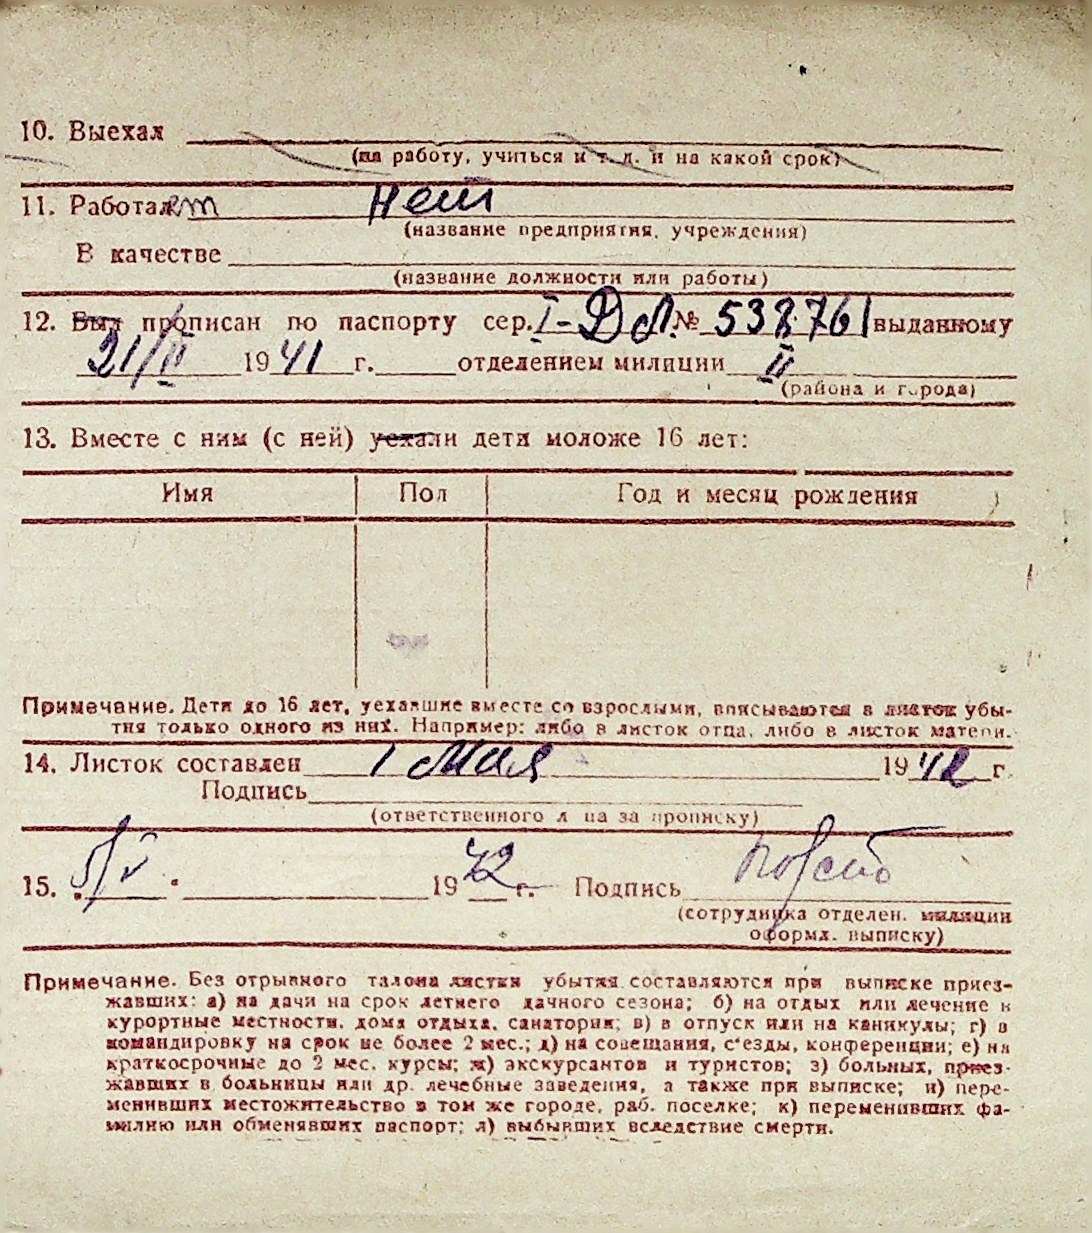 10. Выехал
(на работу, учиться и т. д. и на какой срок)
11. Работает Нет
(название предприятия, учреждения)
В качестве
(название должности или работы)
12. Был прописан по паспорту сер. I-ДЛ № 538761 выданному
21/II 1941 г. отделением милиции II
(района и города)
13. Вместе с ним (с ней) уехали дети моложе 16 лет:
Имя Пол Год и месяц рождения
Примечание. Дети до 16 лет, уехавшие вместе со взрослыми, вписываются в листок убы-
тия только одного из них. Например: либо в листок отца, либо в листок матери.
14. Листок составлен 1 мая 1942 г.
Подпись
(ответственного лица за прописку)
15. 5/V 1942 г. Подпись
(сотрудника отделен. милиции
оформл. выписку)
Примечание. Без отрывного талона листки убытия составляются при выписке приез-
жавших: а) на дачи на срок летнего дачного сезона; б) на отдых или лечение в
курортные местности, дома отдыха, санатории; в) в отпуск или на каникулы; г) в
командировку на срок не более 2 мес.; д) на совещания, с'езды, конференции; е) на
краткосрочные до 2 мес. курсы; ж) экскурсантов и туристов; з) больных, приез-
жавших в больницы или др. лечебные заведения, а также при выписке; и) пере-
менивших местожительство в том же городе, раб. поселке; к) переменивших фа-
милию или обменявших паспорт; л) выбывших вследствие смерти.